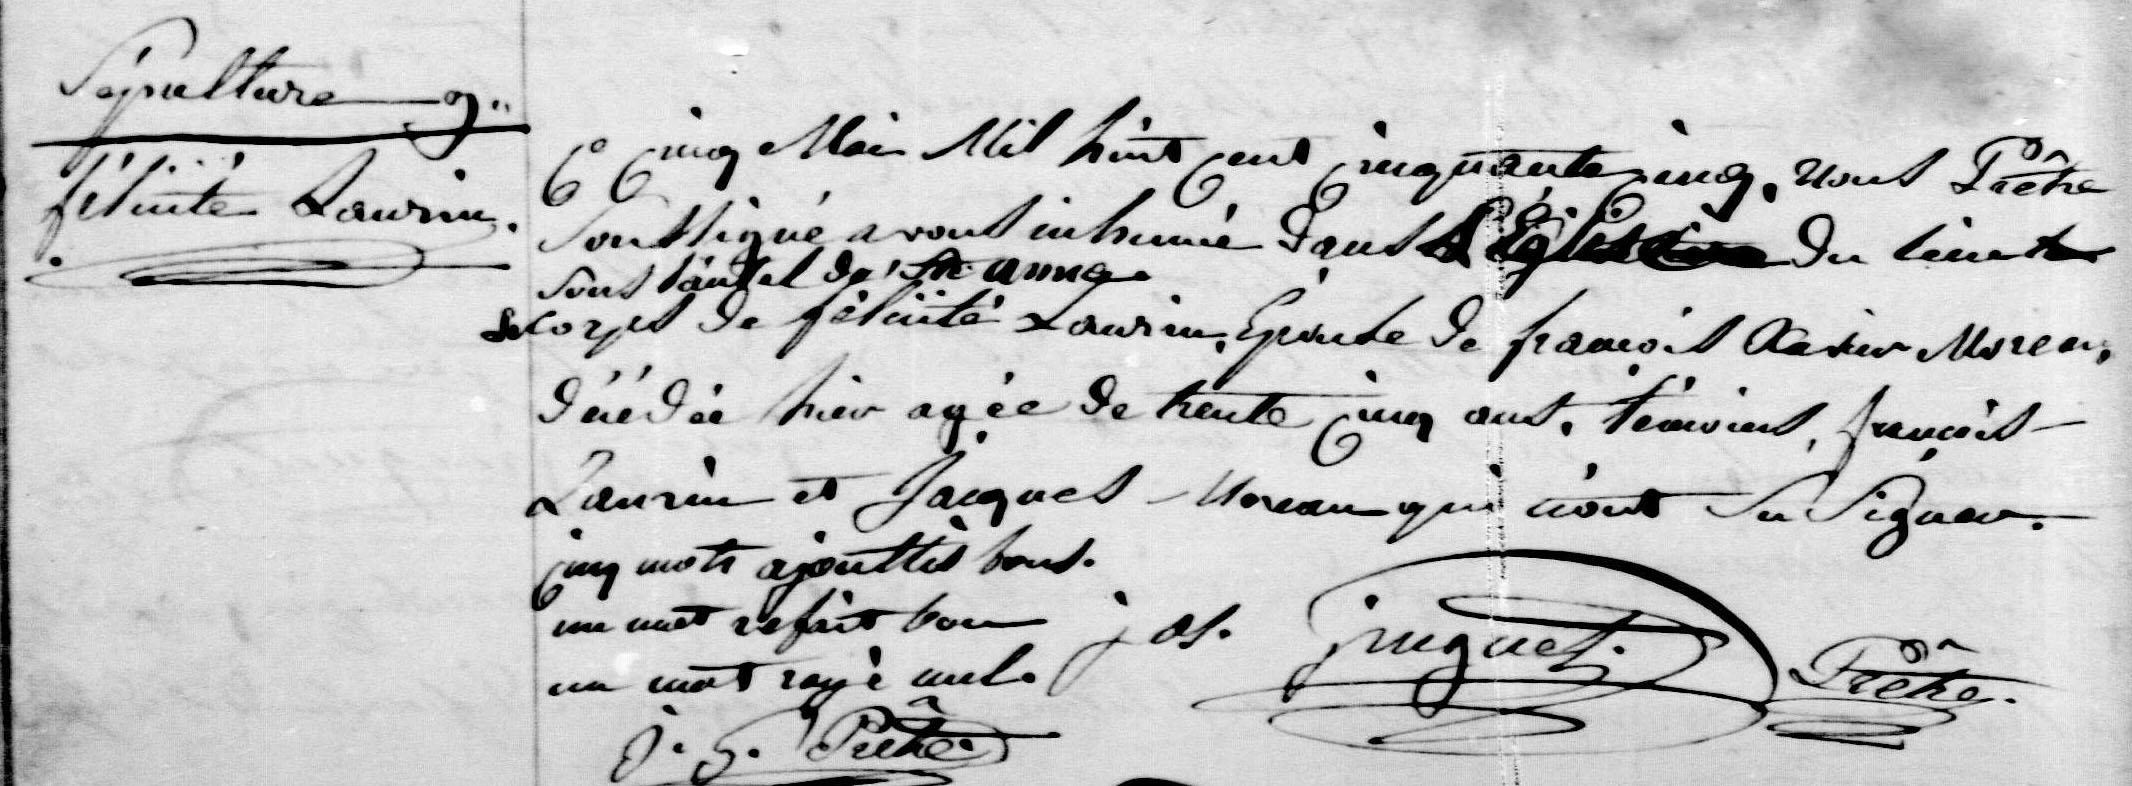 Sépulture 9.
félicité Laurin.
Ce Cinq Mai Mil huit Cent Cinquante Cinq, nous Prêtre
Soussigné avons inhumé dans l'Église du lieu
sous l'autel de Ste Anne
le corps de félicité Laurin, Épouse de françois Xavier Moreau,
décédée hier agée de trente Cinq ans, témoins, françois
Laurin et Jacques Moreau qui n'ont su Signer.
Cinq mots ajouttés bons.
un mot refait bon
un mot rayé nul.
J. G. Prêtre
jos. Prêtre.